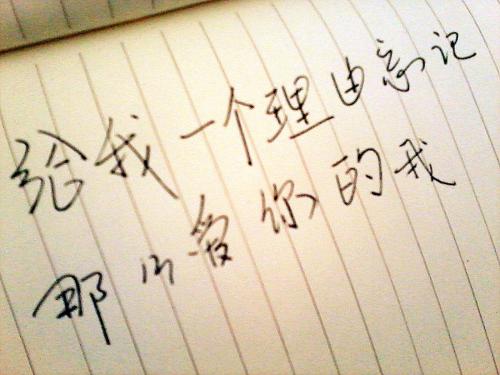 给我一个理由忘记
那么爱你的我